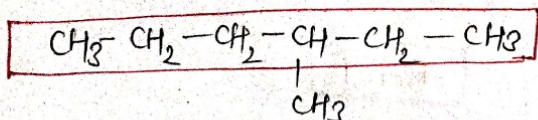 CH3-CH2-CH2-CH-CH2-CH3
CH3